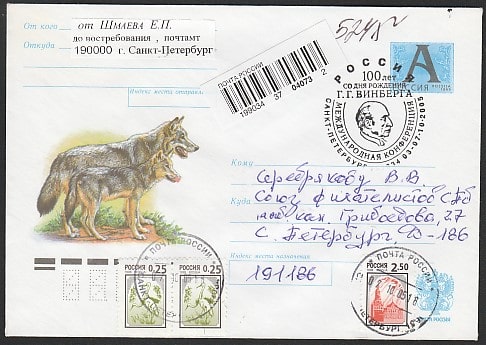 От кого от Шмаева Е.П.
до востребования, почтамт
Откуда 190000 г. Санкт-Петербург
Индекс места отправления
ПОЧТА РОССИИ
199034 37 04073 2
А
РОССИЯ
РОССИЯ
100 лет
СО ДНЯ РОЖДЕНИЯ
Г.Г. ВИНБЕРГА
МЕЖДУНАРОДНАЯ КОНФЕРЕНЦИЯ
САНКТ-ПЕТЕРБУРГ
03-07-10-2005
Кому
Серебрякову В.В
Союз филателистов СПб
наб кан. Грибоедова, 27
С. Петербург Д-186
Куда
191186
Индекс места назначения
РОССИЯ 0.25
РОССИЯ 0.25
РОССИЯ 2.50
ПОЧТА РОССИИ
ПОЧТА РОССИИ